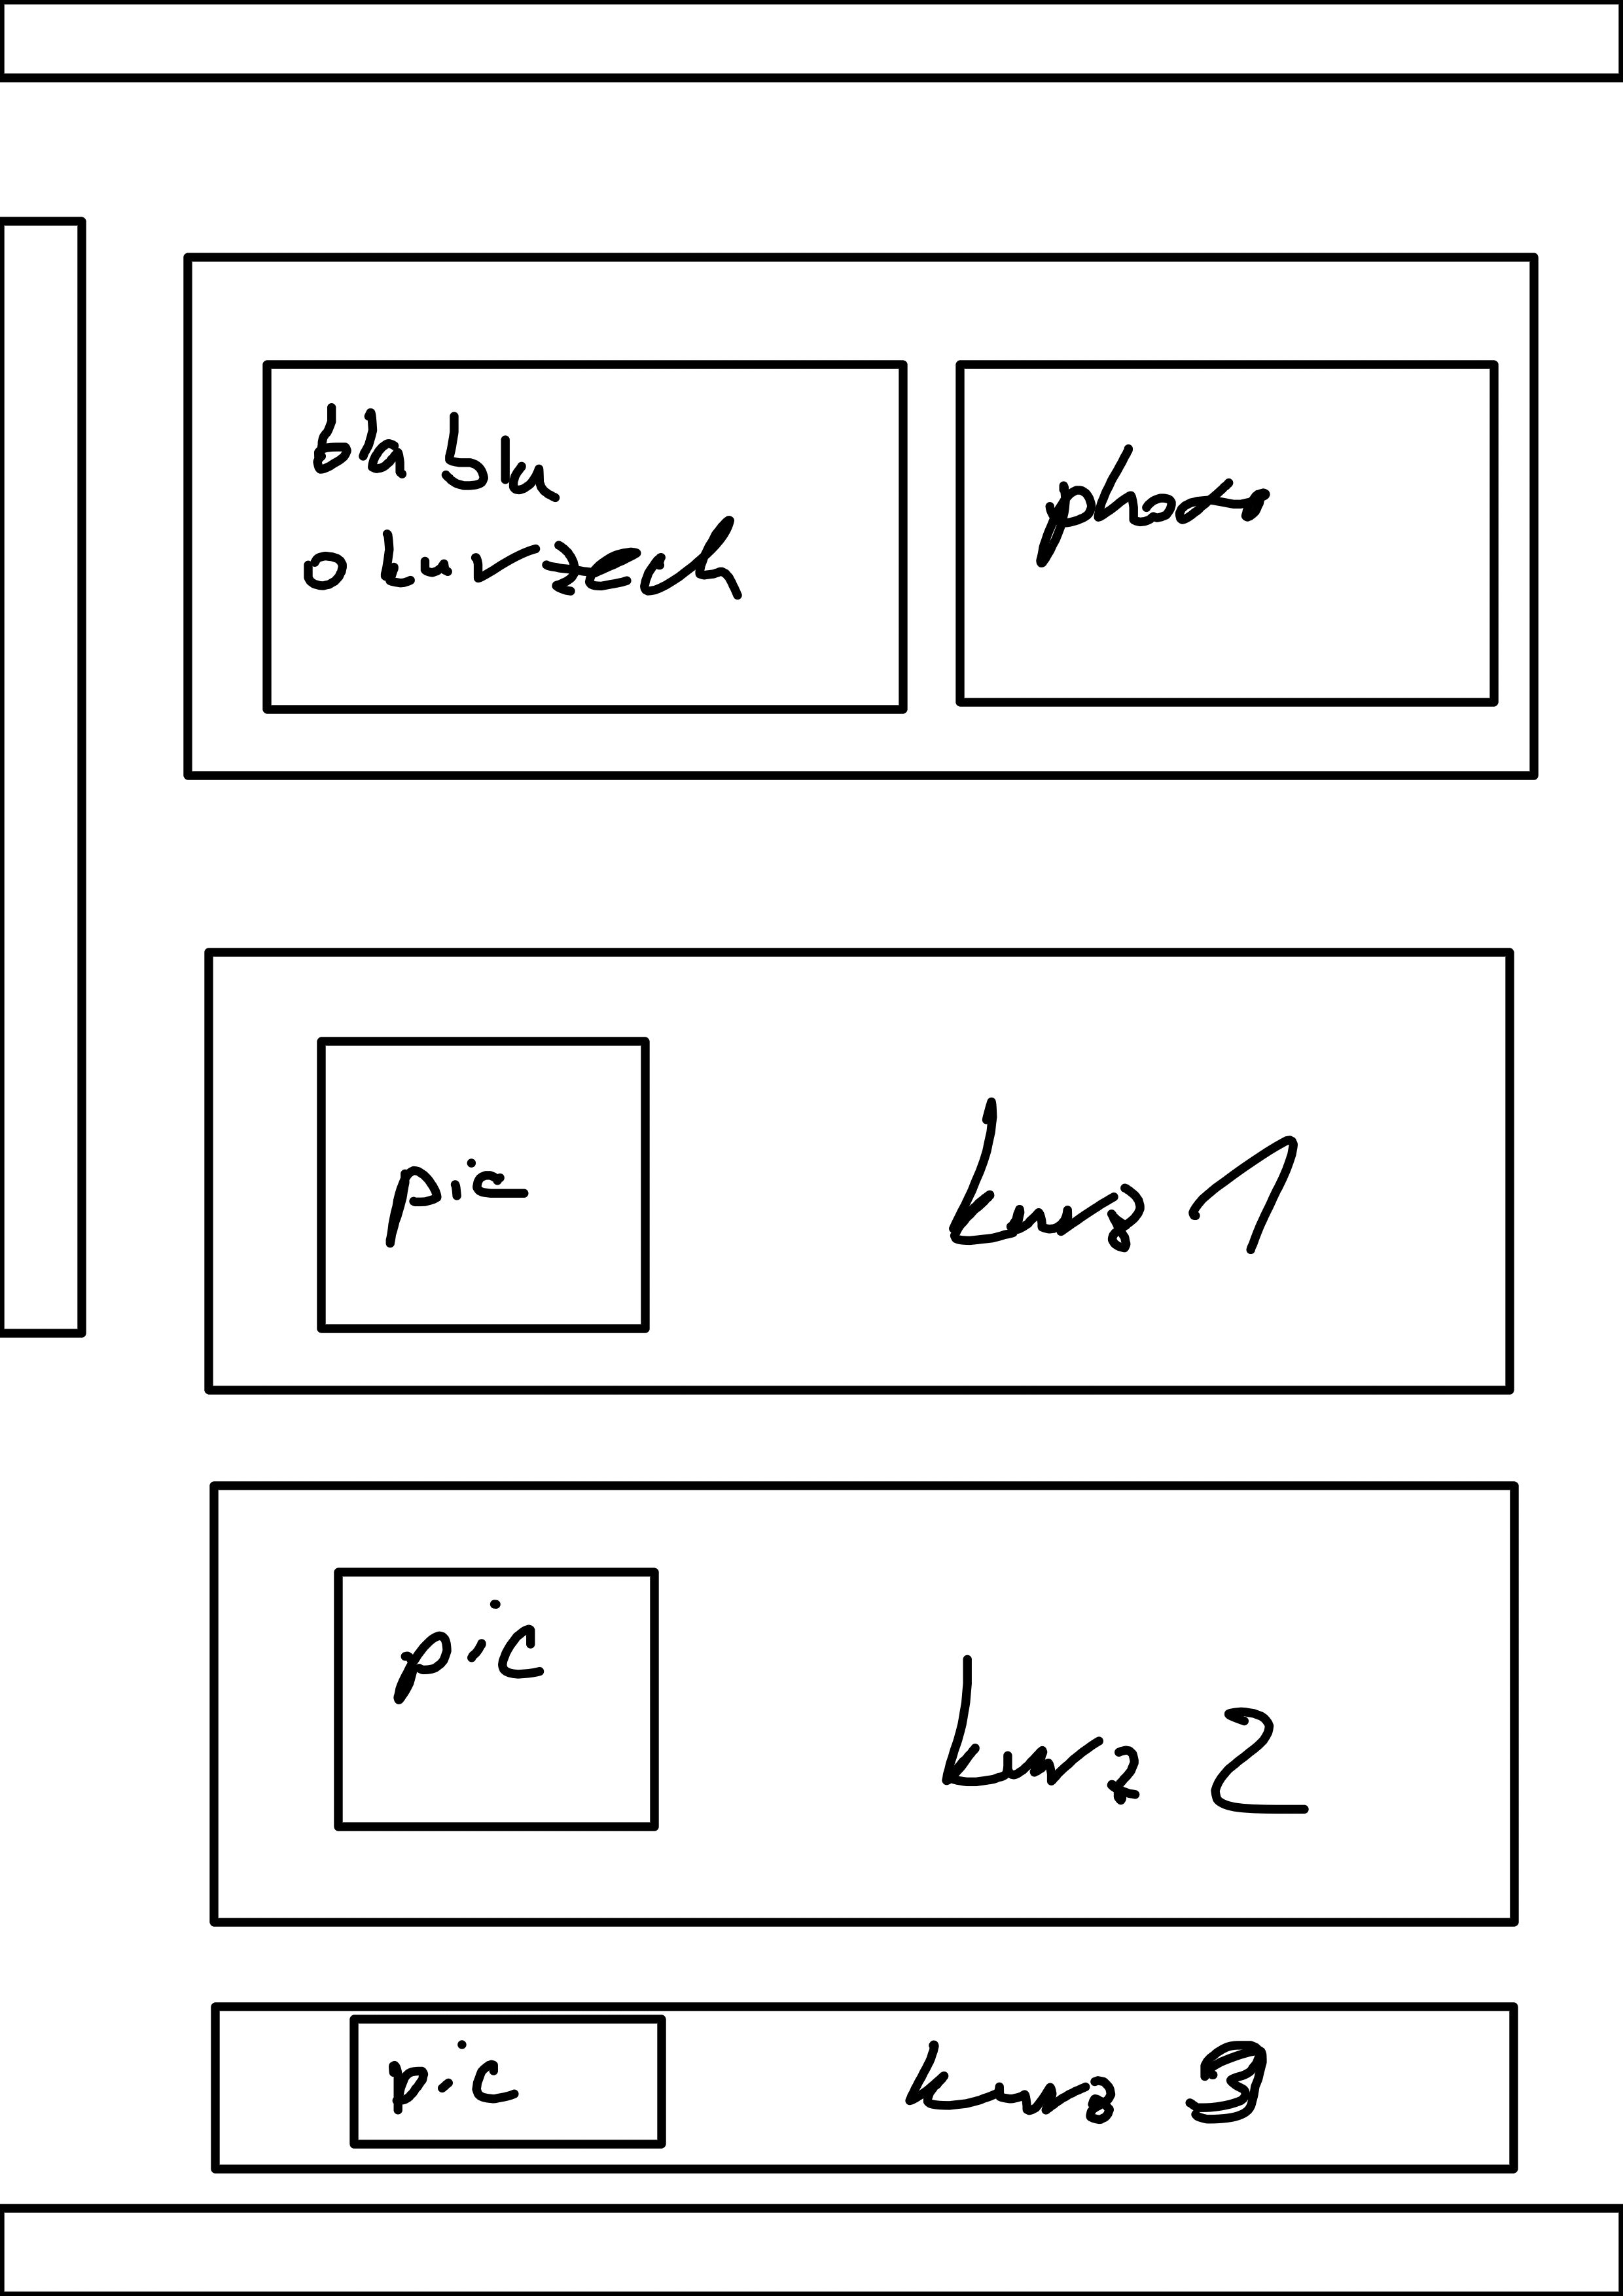 bla bla
o kurzech
photo
pic
kurz 1
pic
kurz 2
pic
kurz 3